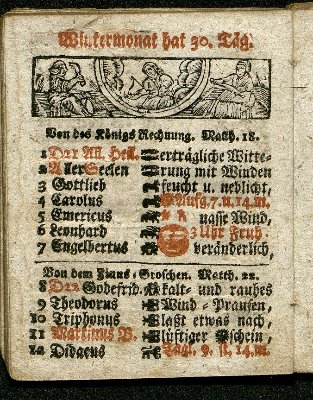 Wintermonat hat 30. Täg.
Von des Königs Rechnung. Matth. 18.
1 D21 All. Heil. Verträgliche Witte-
2 Aller Seelen rung mit Winden
3 Gottlieb feucht u. neblicht,
4 Carolus Aufg. 7. u. 14. m.
5 Emericus nasse Wind,
6 Leonhard 3 Uhr Fruh
7 Engelbertus veränderlich,
Von dem Zinns-Groschen. Matth. 22.
8 D22 Godefrid. kalt- und rauhes
9 Theodorus Wind-Prausen,
10 Triphonus laßt etwas nach,
11 Martinus B. lüftiger schein,
12 Didacus Tagl. 9. st. 14. m.